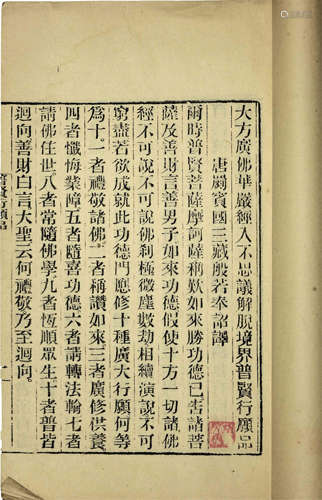 大方廣佛華嚴經入不思議解脫境界普賢行願品
唐罽賓國三藏般若奉詔譯
爾時普賢菩薩摩訶薩稱歎如來勝功德已告諸菩
薩及善財言善男子如來功德假使十方一切諸佛
經不可說不可說佛刹極微塵數劫相續演說不可
窮盡若欲成就此功德門應修十種廣大行願何等
爲十。一者禮敬諸佛。二者稱讚如來三者廣修供養
四者懺悔業障五者隨喜功德六者請轉法輪七者
請佛住世八者常隨佛學九者恆順眾生十者普皆
迴向善財白言大聖云何禮敬乃至迴向。
普賢行願品
一